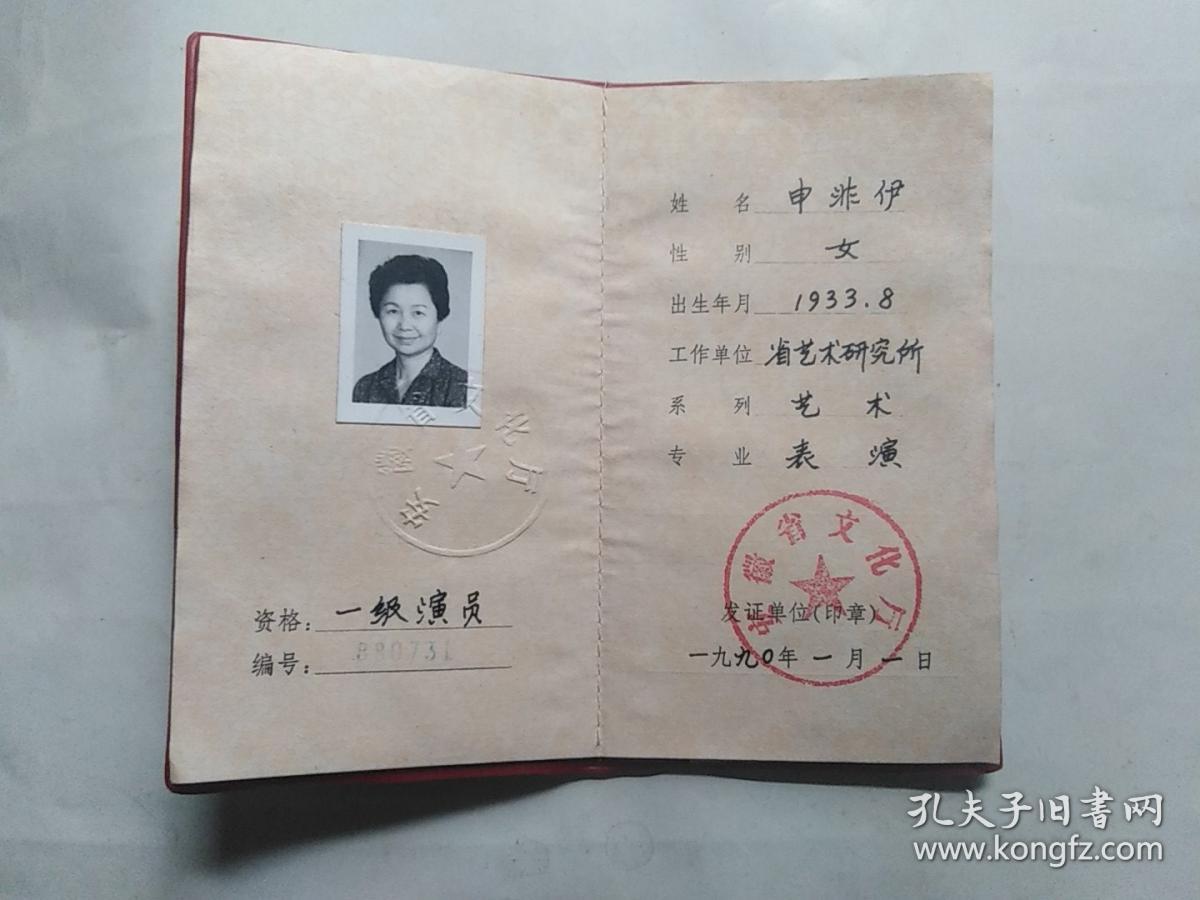 安徽省文化厅
资格：一级演员
编号：880731
姓名 申非伊
性别 女
出生年月 1933.8
工作单位 省艺术研究所
系列 艺术
专业 表演
安徽省文化厅
发证单位(印章)
一九九0年一月一日
孔夫子旧书网
www.kongfz.com